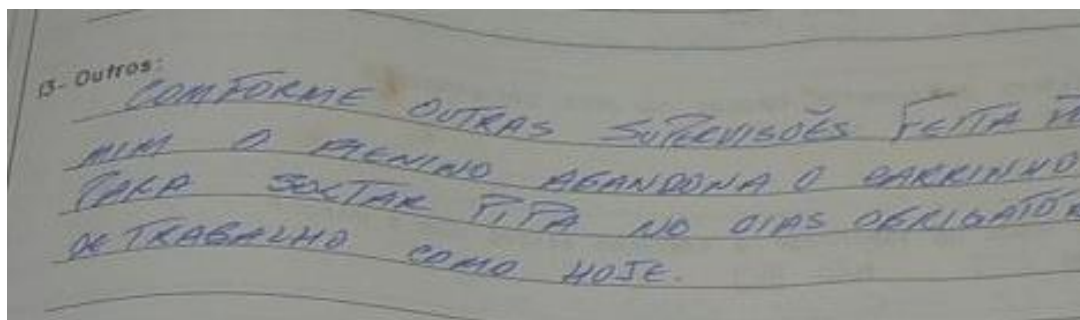 13- Outros:
COMFORME OUTRAS SUPERVISÕES FEITA
MIM O MENINO ABANDONA O CARRINHO
PARA SOLTAR PIPA NO DIAS OBRIGATÓR
DE TRABALHO COMO HOJE.